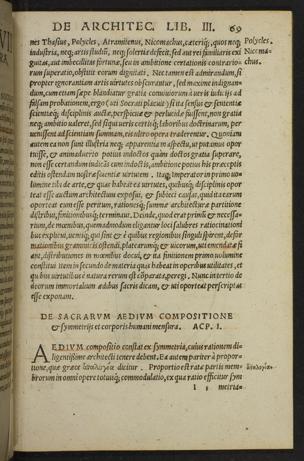 DE ARCHITEC. LIB. III. 69
mes Thasius, Polycles, Atramitenus, Nicomachus, cæteriq́;, quos neq́; Polycles.
industria, neq́; artis studiũ, neq́; solertia defecit, sed aut rei familiaris exi Nicoma=
guitas, aut imbecillitas fortunæ, seu in ambitione certationis contrario- chus.
rum superatio, obstitit eorum dignitati. Nec tamen est admirandum, si
propter ignorantiam artis virtutes obscurantur, sed maxime indignan=
dum, cum etiam sæpe blandiatur gratia conuiuiorum à veris iudicijs ad
falsam probationem, ergo (uti Socrati placuit) si ita sensus & sententiæ
scientiæq́; disciplinis auctæ, perspicuæ & perlucidæ fuissent, non gratia
neq́; ambitio valeret, sed si qui veris certisq́; laboribus doctrinarum, per
uenissent ad scientiam summam, eis ultro opera traderentur. Quoniam
autem ea non sunt illustria neq́; apparentia in aspectu, ut putamus opor
tuisse, & animaduerto potius indoctos quàm doctos gratia superare,
non esse certandum iudicans cum indoctis, ambitione potius his præceptis
editis ostendam nostræ scientiæ virtutem. Itaq́; imperator in primo uo
lumine tibi de arte, & quas habeat ea virtutes, quibusq́; disciplinis opor
teat esse auctum architectum exposui, & subieci causas, quid ita earum
oporteat eum esse peritum, rationesq́; summæ architecturæ partitione
distribui, finitionibusq́; terminaui. Deinde, quod erat primũ & necessa-
rium, de mœnibus, quemadmodum eligantur loci salubres ratiocinationi
bus explicui, uentiq́; qui sint & è quibus regionibus singuli spirent, defor
mationibus grammicis ostendi, platearumq́; & uicorum, uti emendatæ si
ant, distributiones in mœnibus docui, & ita finitionem primo uolumine
constitui. item in secundo de materia quas habeat in operibus utilitates, et
quibus uirtutibus è natura rerum est cõparata, peregi. Nunc in tertio de
deorum immortalium ædibus sacris dicam, & uti oporteat perscriptas
esse exponam.
DE SACRARVM AEDIVM COMPOSITIONE
& symmetrijs et corporis humani mensura. ACP. I.
AEDIVM compositio constat ex symmetria, cuius rationem di
ligentissime architecti tenere debent. Ea autem paritur à propor=
tione, quæ græce ἀναλογία dicitur. Proportio est rata partis mem= ἀναλογία.
brorum in omni opere totiusq́; commodulatio, ex qua ratio efficitur sym
I metria-